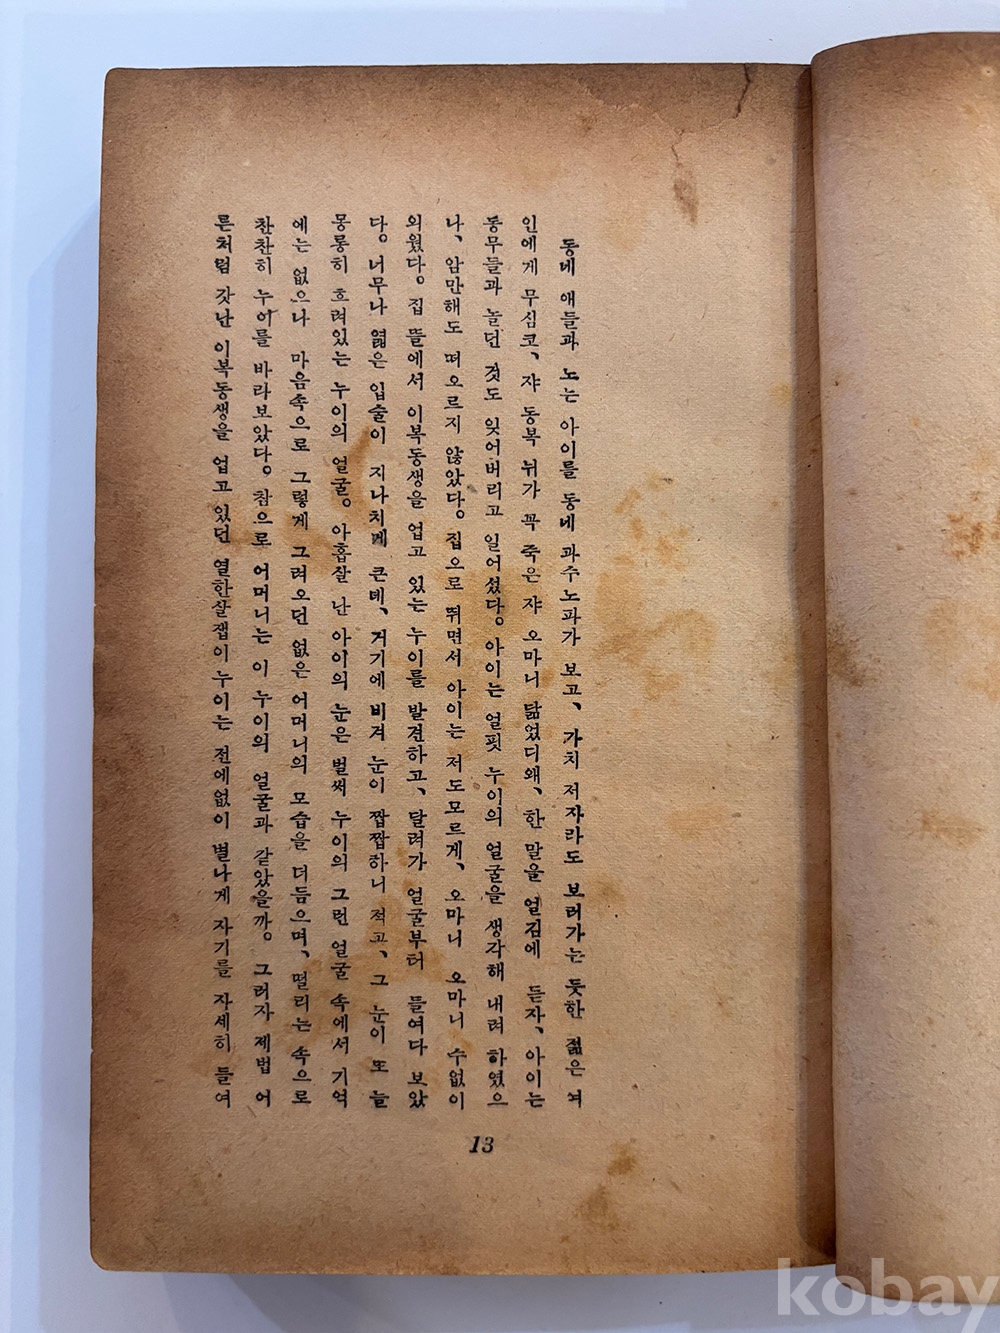 동네 애들과 노는 아이를 동네 과수노파가 보고, 가치 저자라도 보러가는 듯한 젊은 여
인에게 무심코, 쟈 동복 뉘가 꼭 죽은 쟈 오마니 닮었디왜, 한 말을 얼김에 듣자, 아이는
동무들과 놀던 것도 잊어버리고 일어섰다. 아이는 얼핏 누이의 얼굴을 생각해 내려 하였으
나, 암만해도 떠오르지 않았다. 집으로 뛰면서 아이는 저도모르게, 오마니 오마니 수없이
외웠다. 집 뜰에서 이복동생을 업고 있는 누이를 발견하고, 달려가 얼굴부터 들여다 보았
다. 너무나 엷은 입술이 지나치게 큰데, 거기에 비겨 눈이 짭짭하니 적고, 그 눈이 또 늘
몽롱히 흐려있는 누이의 얼굴. 아홉살 난 아이의 눈은 벌써 누이의 그런 얼굴 속에서 기억
에는 없으나 마음속으로 그렇게 그려오던 없은 어머니의 모습을 더듬으며, 떨리는 속으로
찬찬히 누이를 바라보았다. 참으로 어머니는 이 누이의 얼굴과 같았을까. 그러자 제법 어
른처럼 갓난 이복동생을 업고 있던 열한살잽이 누이는 전에없이 별나게 자기를 자세히 들여
13
kobay